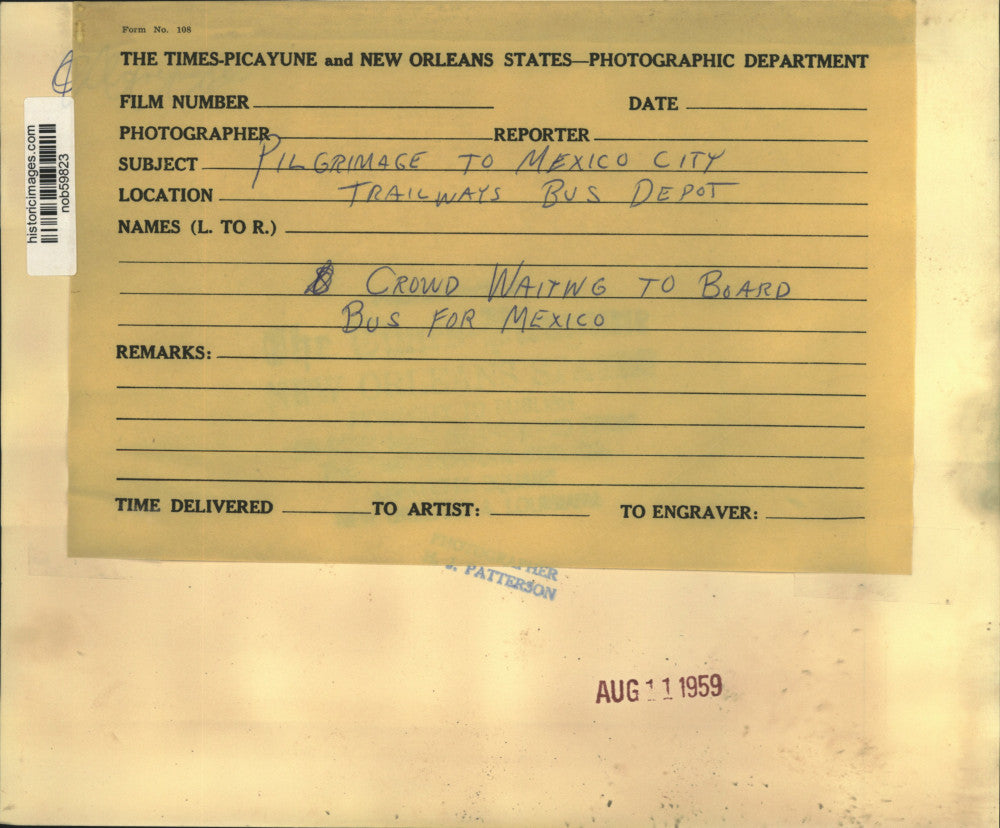 Form No. 108
THE TIMES-PICAYUNE and NEW ORLEANS STATES—PHOTOGRAPHIC DEPARTMENT
FILM NUMBER
DATE
PHOTOGRAPHER
REPORTER
SUBJECT PILGRIMAGE TO MEXICO CITY
LOCATION TRAILWAYS BUS DEPOT
NAMES (L. TO R.)
CROWD WAITING TO BOARD
BUS FOR MEXICO
REMARKS:
TIME DELIVERED
TO ARTIST:
TO ENGRAVER:
PHOTOGRAPHER
J. PATTERSON
AUG 11 1959
historicimages.com
nob59823